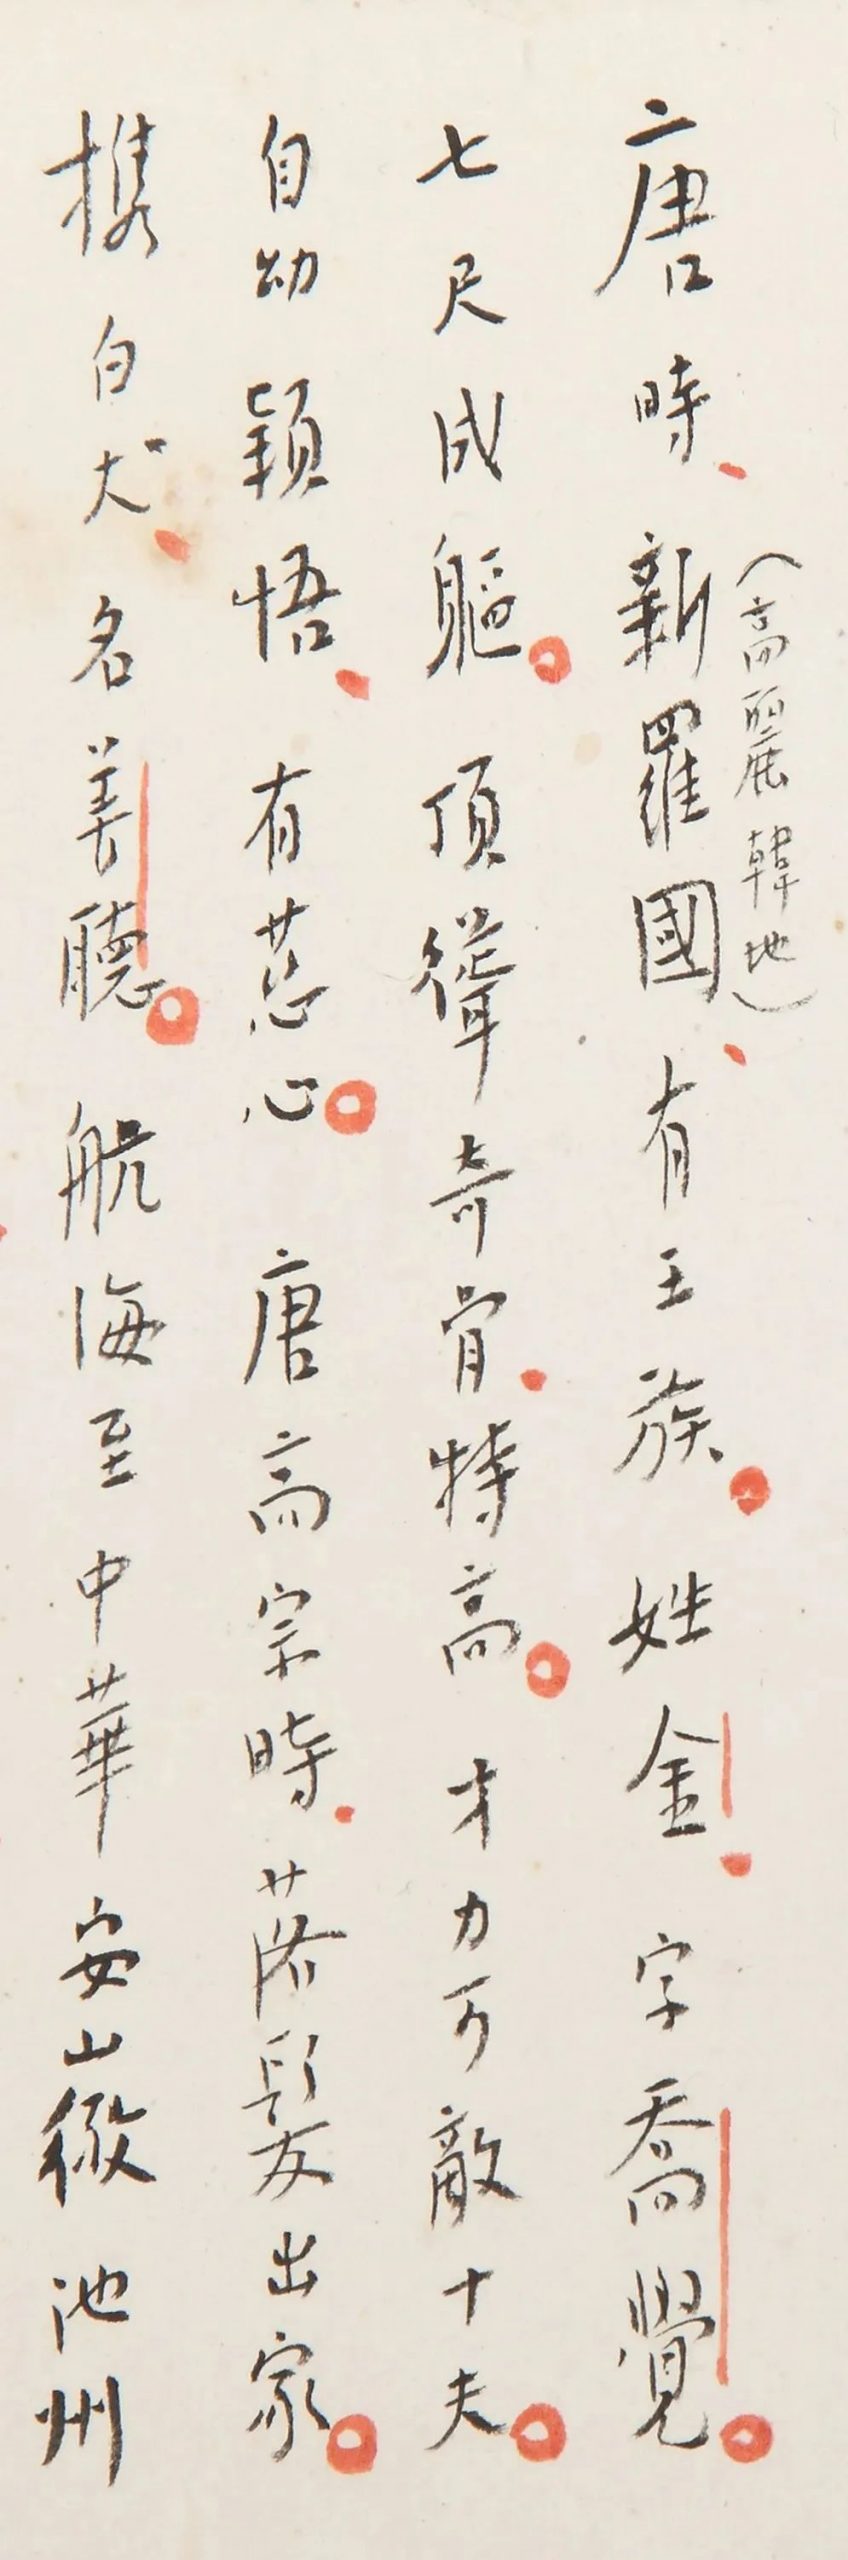 唐時、新羅國、有王族。姓金、字喬覺。
（高麗韓地）
七尺成軀。頂聳奇骨、特高。才力可敵十夫。
自幼穎悟、有慈心。唐高宗時、落髮出家。
携白犬、名善聽。航海至中華安徽池州